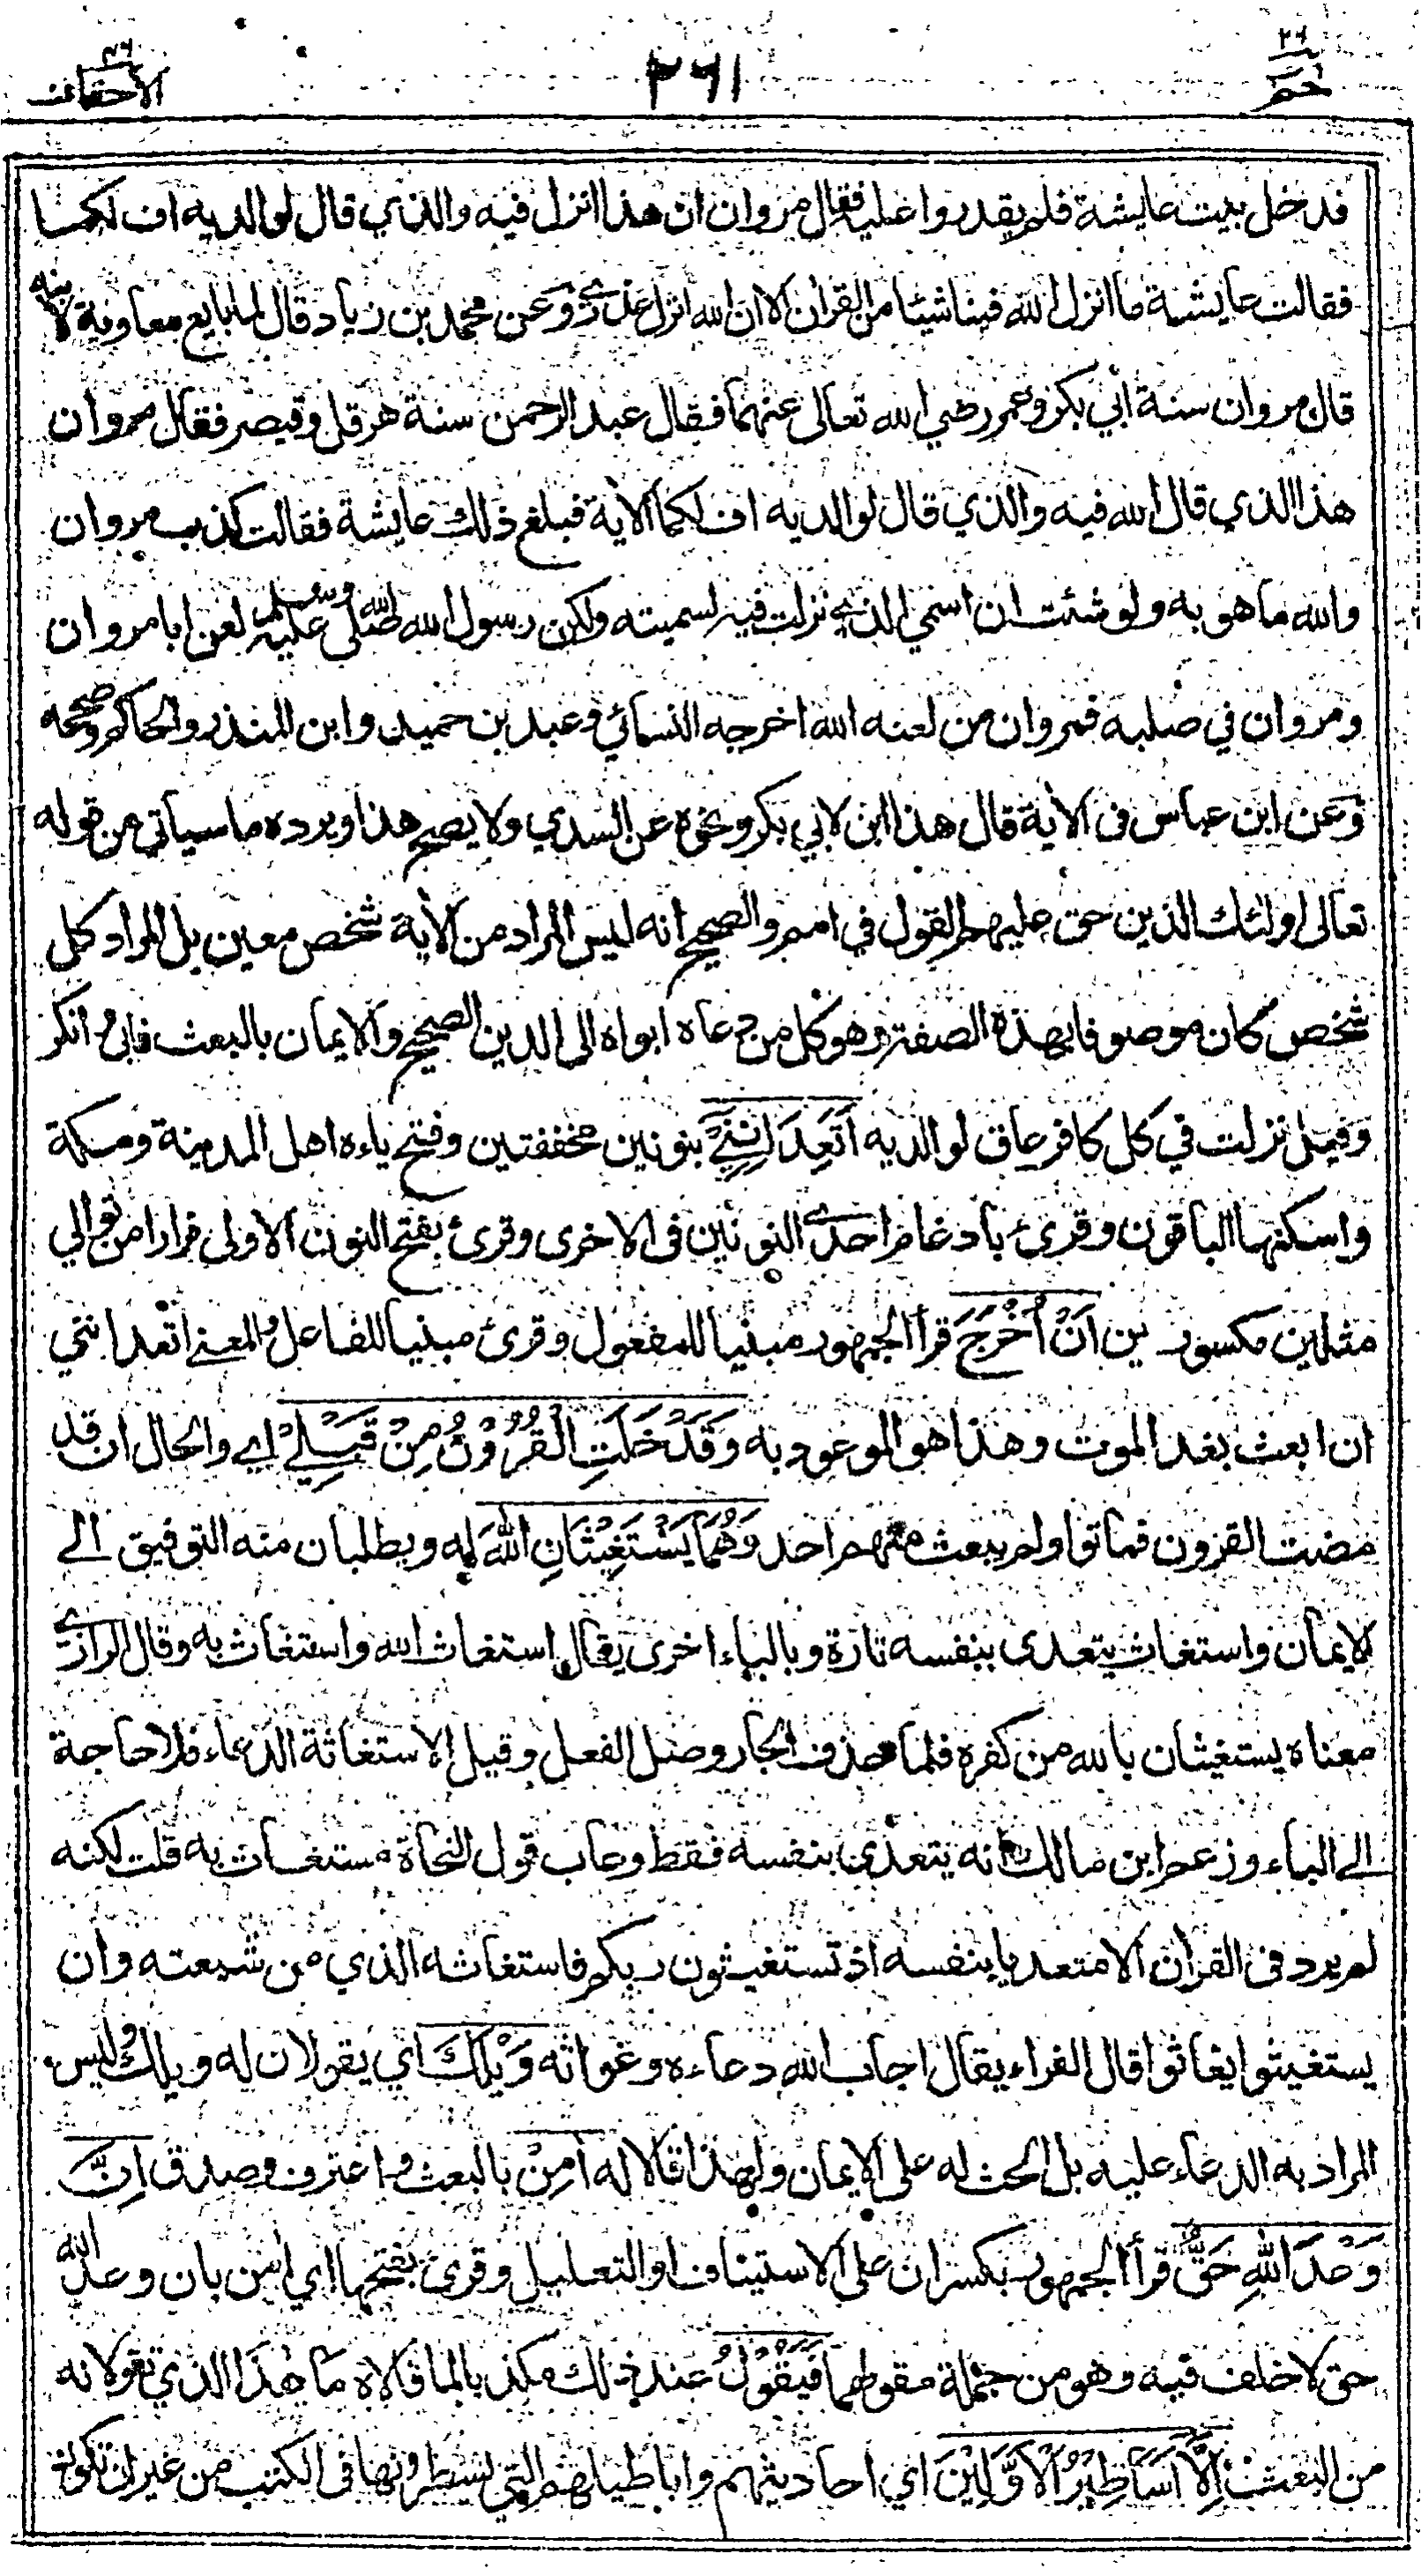 حم ٢٦
٣٦١
الأحقاف ٤٦
فدخل بيت عايشة فلم يقدروا عليه فقال مروان ان هذا انزل فيه والذي قال لوالديه اف لكما
فقالت عايشة ما انزل الله فينا شيئا من القرآن الا ان الله انزل عذري وعن محمد بن زياد قال لما بايع معاوية لابنه
قال مروان سنة أبي بكر وعمر رضي الله تعالى عنهما فقال عبد الرحمن سنة هرقل وقيصر فقال مروان
هذا الذي قال الله فيه والذي قال لوالديه اف لكما الآية فبلغ ذلك عايشة فقالت كذب مروان
والله ما هو به ولو شئت ان اسمي الذي نزلت فيه لسميته ولكن رسول الله صلى الله عليه وسلم لعن ابا مروان
ومروان في صلبه فمروان من لعنه الله اخرجه النسائي وعبد بن حميد وابن المنذر والحاكم وصححه
وعن ابن عباس في الآية قال هذا ابن لابي بكر ونحوه عن السدي ولا يصح هذا ويرده ما سيأتي من قوله
تعالى اولئك الذين حق عليهم القول في امم والصحيح انه ليس المراد من الآية شخص معين بل المراد كل
شخص كان موصوفا بهذه الصفة وهو كل من دعاه ابواه الى الدين الصحيح والايمان بالبعث فابى وانكر
وقيل نزلت في كل كافر عاق لوالديه أَتَعِدَانِنِيْ بنونين مخففتين وفتح ياءه اهل المدينة ومكة
واسكنها الباقون وقرئ بادغام احدى النونين في الاخرى وقرئ بفتح النون الاولى فرارا من توالي
مثلين مكسورين اَنْ اُخْرَجَ قرأ الجمهور مبنيا للمفعول وقرئ مبنيا للفاعل والمعنى اتعدانني
ان ابعث بعد الموت وهذا هو الموعود به وَقَدْ خَلَتِ الْقُرُوْنُ مِنْ قَبْلِيْ اي والحال ان قد
مضت القرون فماتوا ولم يبعث منهم احد وَهُمَا يَسْتَغِيْثَانِ اللّٰهَ له ويطلبان منه التوفيق الى
الايمان واستغاث يتعدى بنفسه تارة وبالباء اخرى يقال استغاث الله واستغاث به وقال الرازي
معناه يستغيثان بالله من كفره فلما حذف الجار وصل الفعل وقيل الاستغاثة الدعاء فلا حاجة
الى الباء وزعم ابن مالك انه يتعدى بنفسه فقط وعاب قول النحاة مستغاث به قلت لكنه
لم يرد في القرآن الا متعديا بنفسه اذ تستغيثون ربكم فاستغاثه الذي من شيعته وان
يستغيثوا يغاثوا قال الفراء يقال اجاب الله دعاءه وغواثه وَيْلَكَ اي يقولان له ويلك وليس
المراد به الدعاء عليه بل الحث له على الايمان ولهذا قالا له آمِنْ بالبعث واعترف وصدق اِنَّ
وَعْدَ اللّٰهِ حَقٌّ قرأ الجمهور بكسر ان على الاستيناف او التعليل وقرئ بفتحها اي امن بان وعد الله
حق لا خلف فيه وهو من جملة مقولهما فَيَقُوْلُ عند ذلك مكذبا لما قالاه مَا هٰذَا الذي تقولانه
من البعث اِلَّا اَسَاطِيْرُ الْاَوَّلِيْنَ اي احاديثهم واباطيلهم التي يسطرونها في الكتب من غير ان تكون